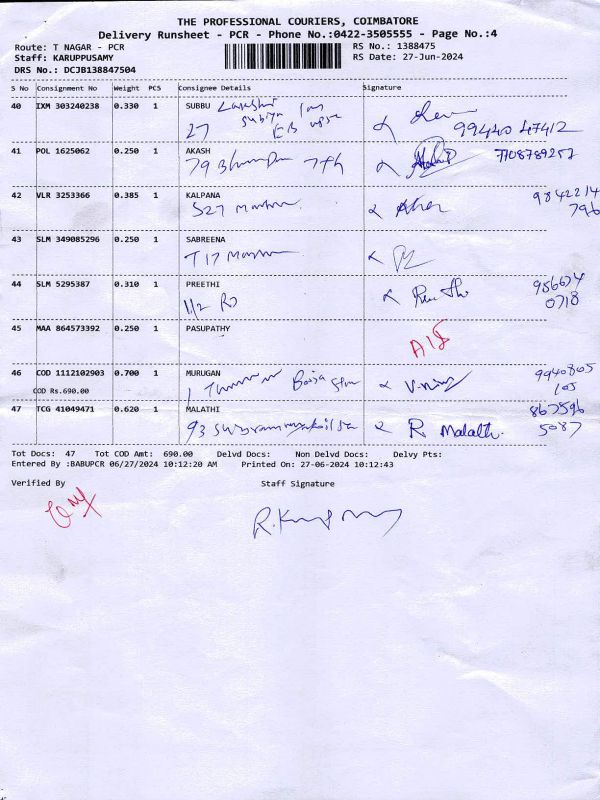 THE PROFESSIONAL COURIERS, COIMBATORE
Delivery Runsheet - PCR - Phone No.:0422-3505555 - Page No.:4
Route: T NAGAR - PCR
RS No.: 1388475
Staff: KARUPPUSAMY
RS Date: 27-Jun-2024
DRS No.: DCJB138847504
S No Consignment No Weight PCS Consignee Details Signature
40 IXM 303240238 0.330 1 SUBBU
27
99440 47412
41 POL 1625062 0.250 1 AKASH
79 7th
7708789257
42 VLR 3253366 0.385 1 KALPANA
527
9842214
796
43 SLM 349085296 0.250 1 SABREENA
T17
44 SLM 5295387 0.310 1 PREETHI
11/2
956674
0718
45 MAA 864573392 0.250 1 PASUPATHY
46 COD 1112102903 0.700 1 MURUGAN
COD Rs.690.00
9940805
105
47 TCG 41049471 0.620 1 MALATHI
93 R Malathi
867596
5087
Tot Docs: 47 Tot COD Amt: 690.00 Delvd Docs: Non Delvd Docs: Delvy Pts:
Entered By :BABUPCR 06/27/2024 10:12:20 AM Printed On: 27-06-2024 10:12:43
Verified By Staff Signature